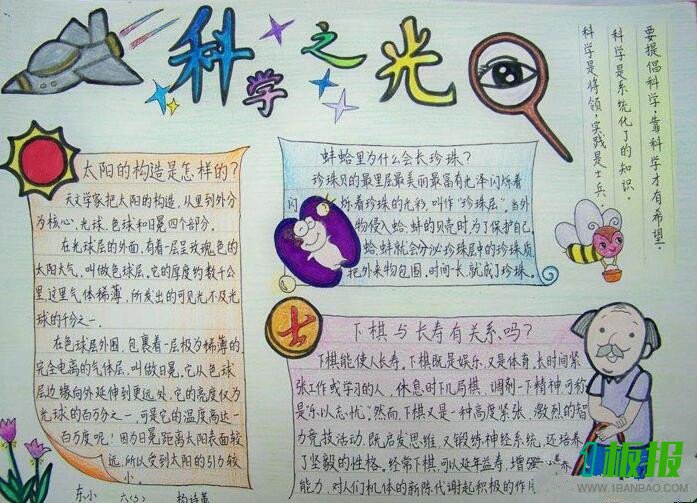 科学之光
要提倡科学,靠科学才有希望。
科学是系统化了的知识。
科学是将领,实践是士兵。
太阳的构造是怎样的?
天文学家把太阳的构造,从里到外分
为核心、光球、色球和日冕四个部分。
在光球层的外面,有着一层呈玫瑰色的
太阳大气。叫做色球层。它的厚度约数千公
里,这里气体稀薄,所发出的可见光不及光
球的千分之一。
在色球层外围,包裹着一层极为稀薄的
完全电离的气体层,叫做日冕,它从色球
层边缘向外延伸到更远处,它的亮度仅为
光球的百万分之一,可是它的温度高达一
百万度呢!因为日冕距离太阳表面较
远,所以受到太阳的引力较
小。
东小
蚌蛤里为什么会长珍珠?
珍珠贝的最里层最美丽最富有光泽闪烁着
闪烁着珍珠的光彩,叫作“珍珠层”。当外
物侵入蛤、蚌的贝壳时,为了保护自己。
蛤、蚌就会分泌珍珠层中的珍珠质
把外来物包围,时间一长,就成了珍珠。
士
下棋与长寿有关系吗?
下棋能使人长寿。下棋既是娱乐,又是体育,长时间紧
张工作或学习的人,休息时下几局棋,调剂一下精神,可称
是乐以忘忧。然而,下棋又是一种高度紧张、激烈的智
力竞技活动,既启发思维,又锻炼神经系统,还培养
了坚毅的性格。经常下棋,可以延年益寿,增强
能力,对人们机体的新陈代谢起积极的作用
板报
WWW.1BANBAO.COM